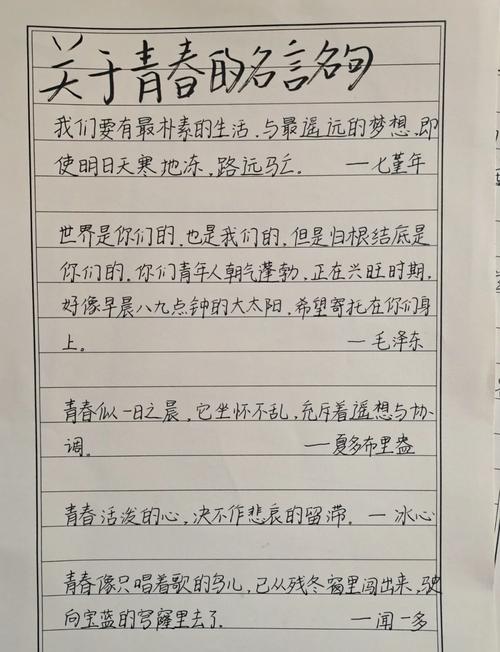 关于青春的名言名句
我们要有最朴素的生活，与最遥远的梦想，即
使明日天寒地冻，路远马亡。 —七堇年
世界是你们的，也是我们的，但是归根结底是
你们的，你们青年人朝气蓬勃，正在兴旺时期，
好像早晨八九点钟的大太阳，希望寄托在你们身
上。 —毛泽东
青春似一日之晨，它坐怀不乱，充斥着遥想与协
调。 —夏多布里盎
青春活泼的心，决不作悲哀的留滞。—冰心
青春像只唱着歌的鸟儿，已从残冬窟里闯出来，驶
向宝蓝的穹窿里去了. —闻一多